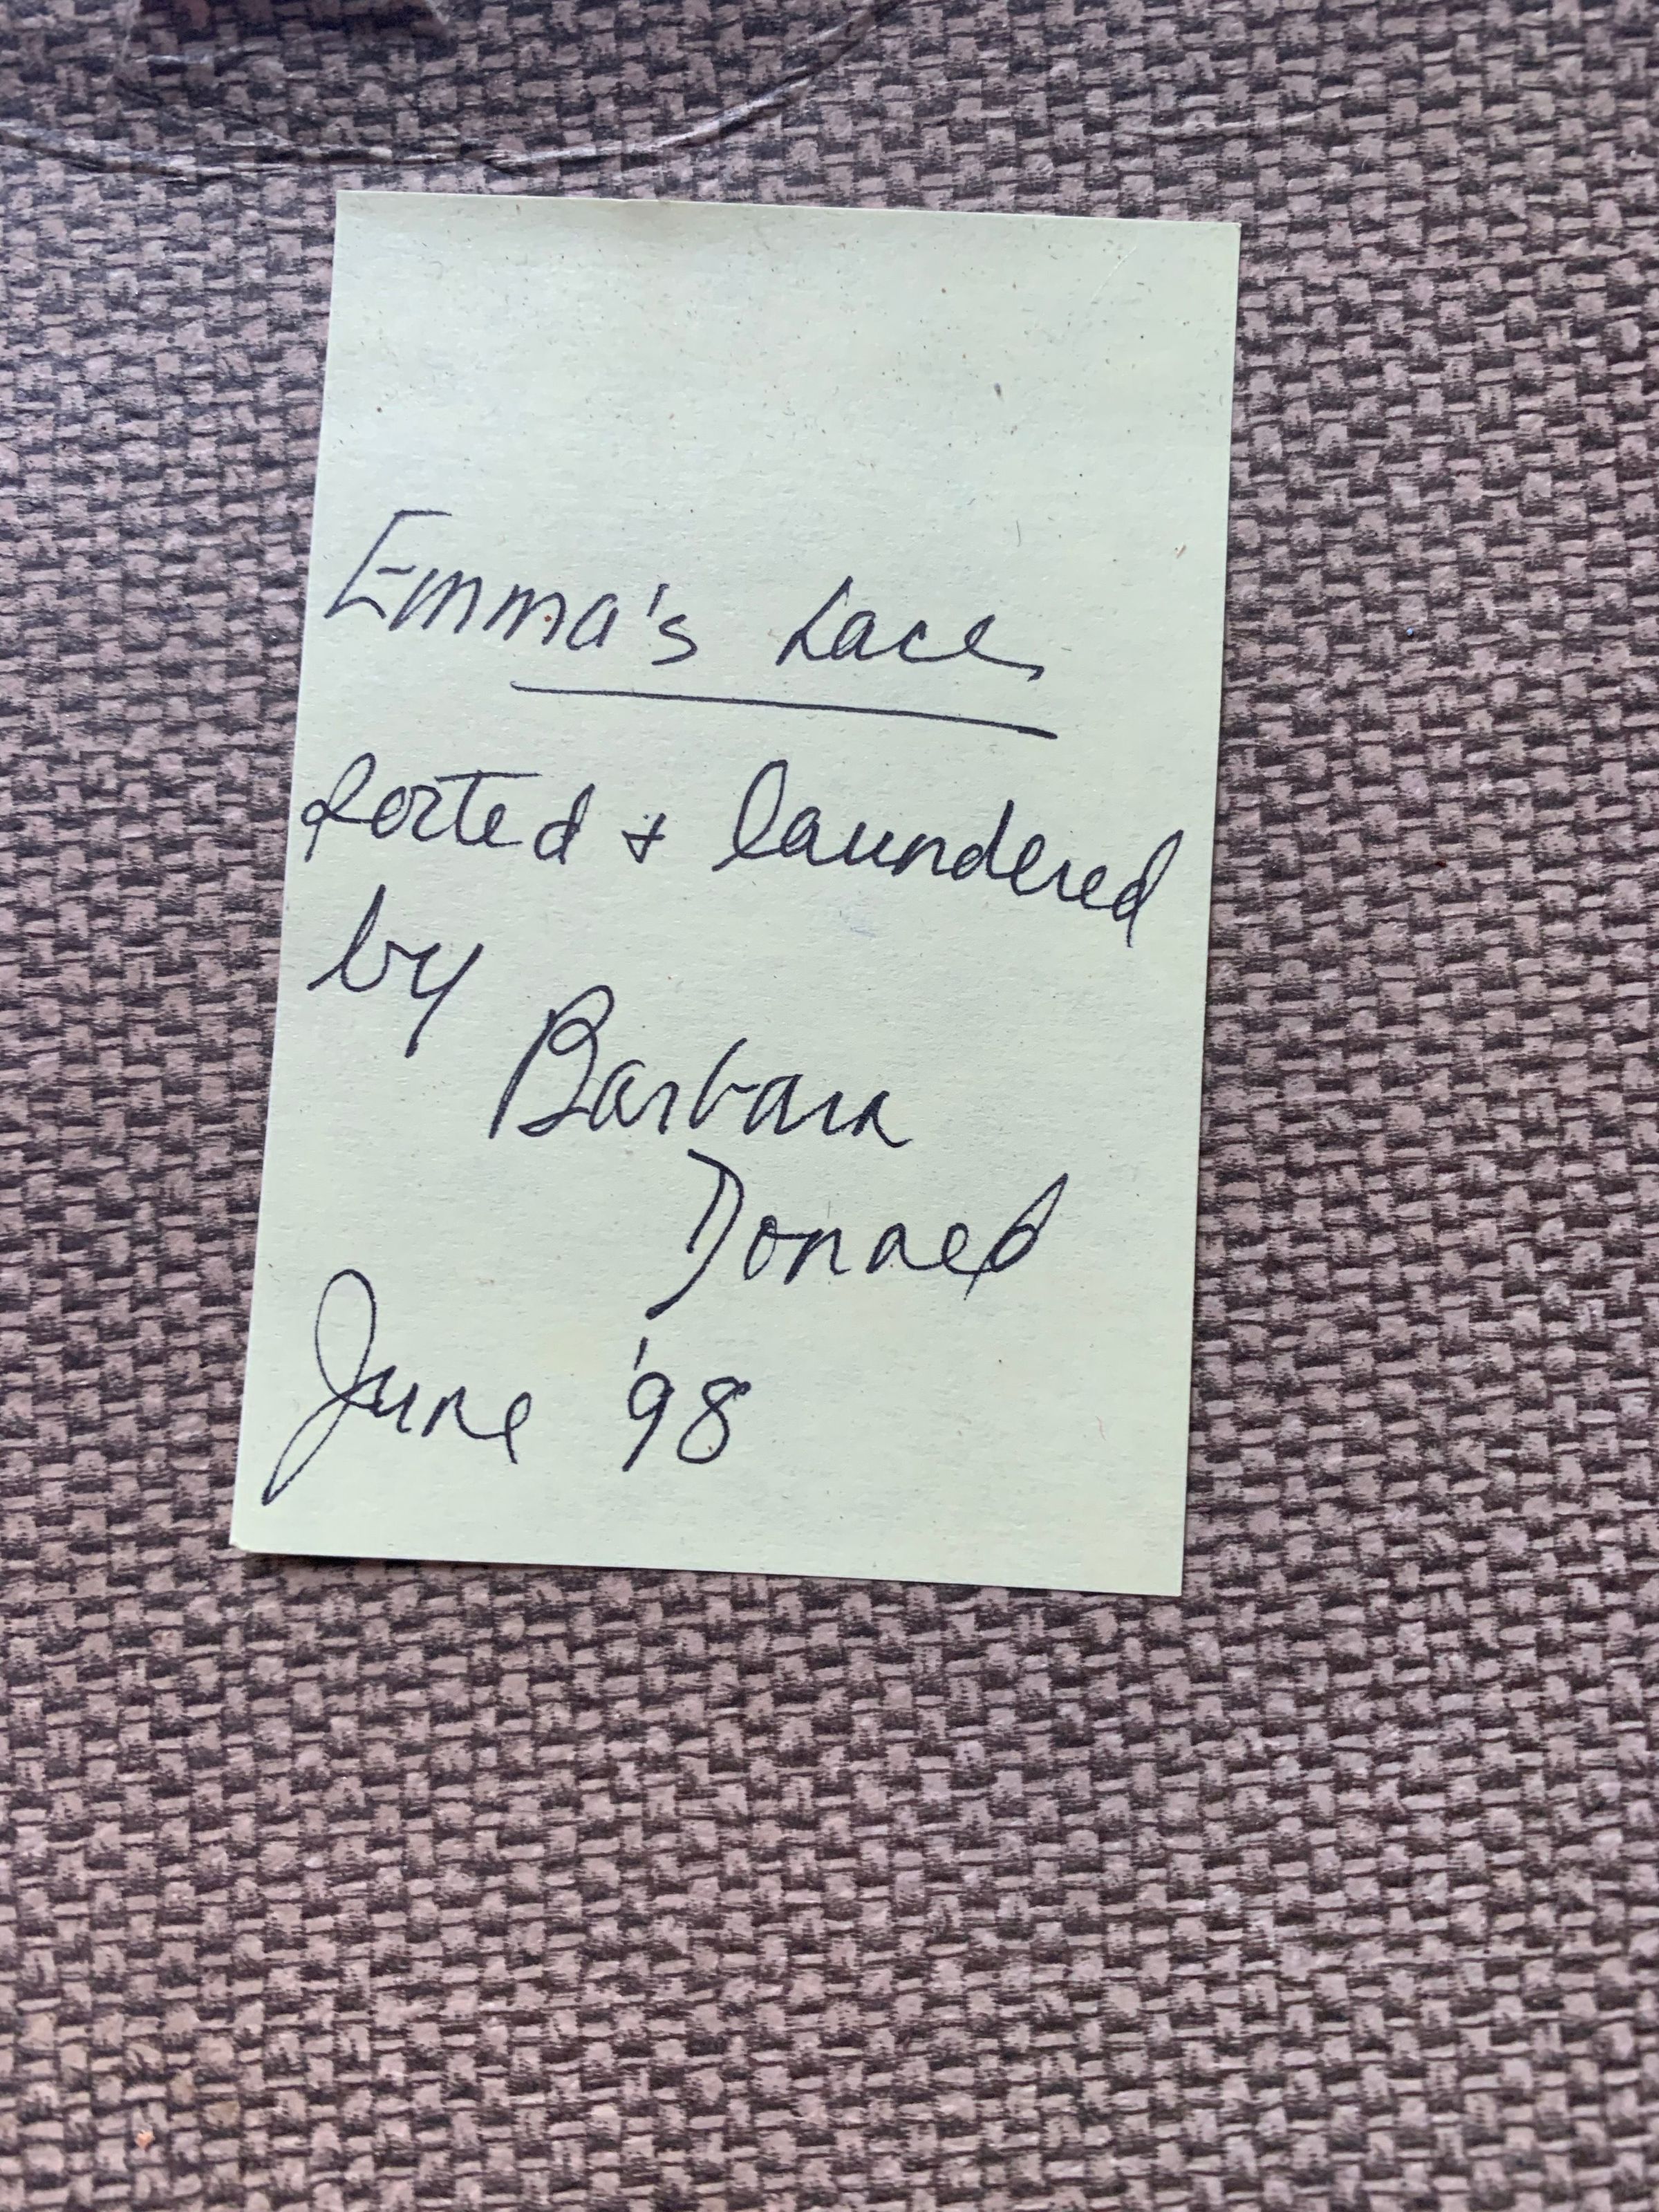 Emma's Lace
sorted + laundered
by
Barbara
June '98